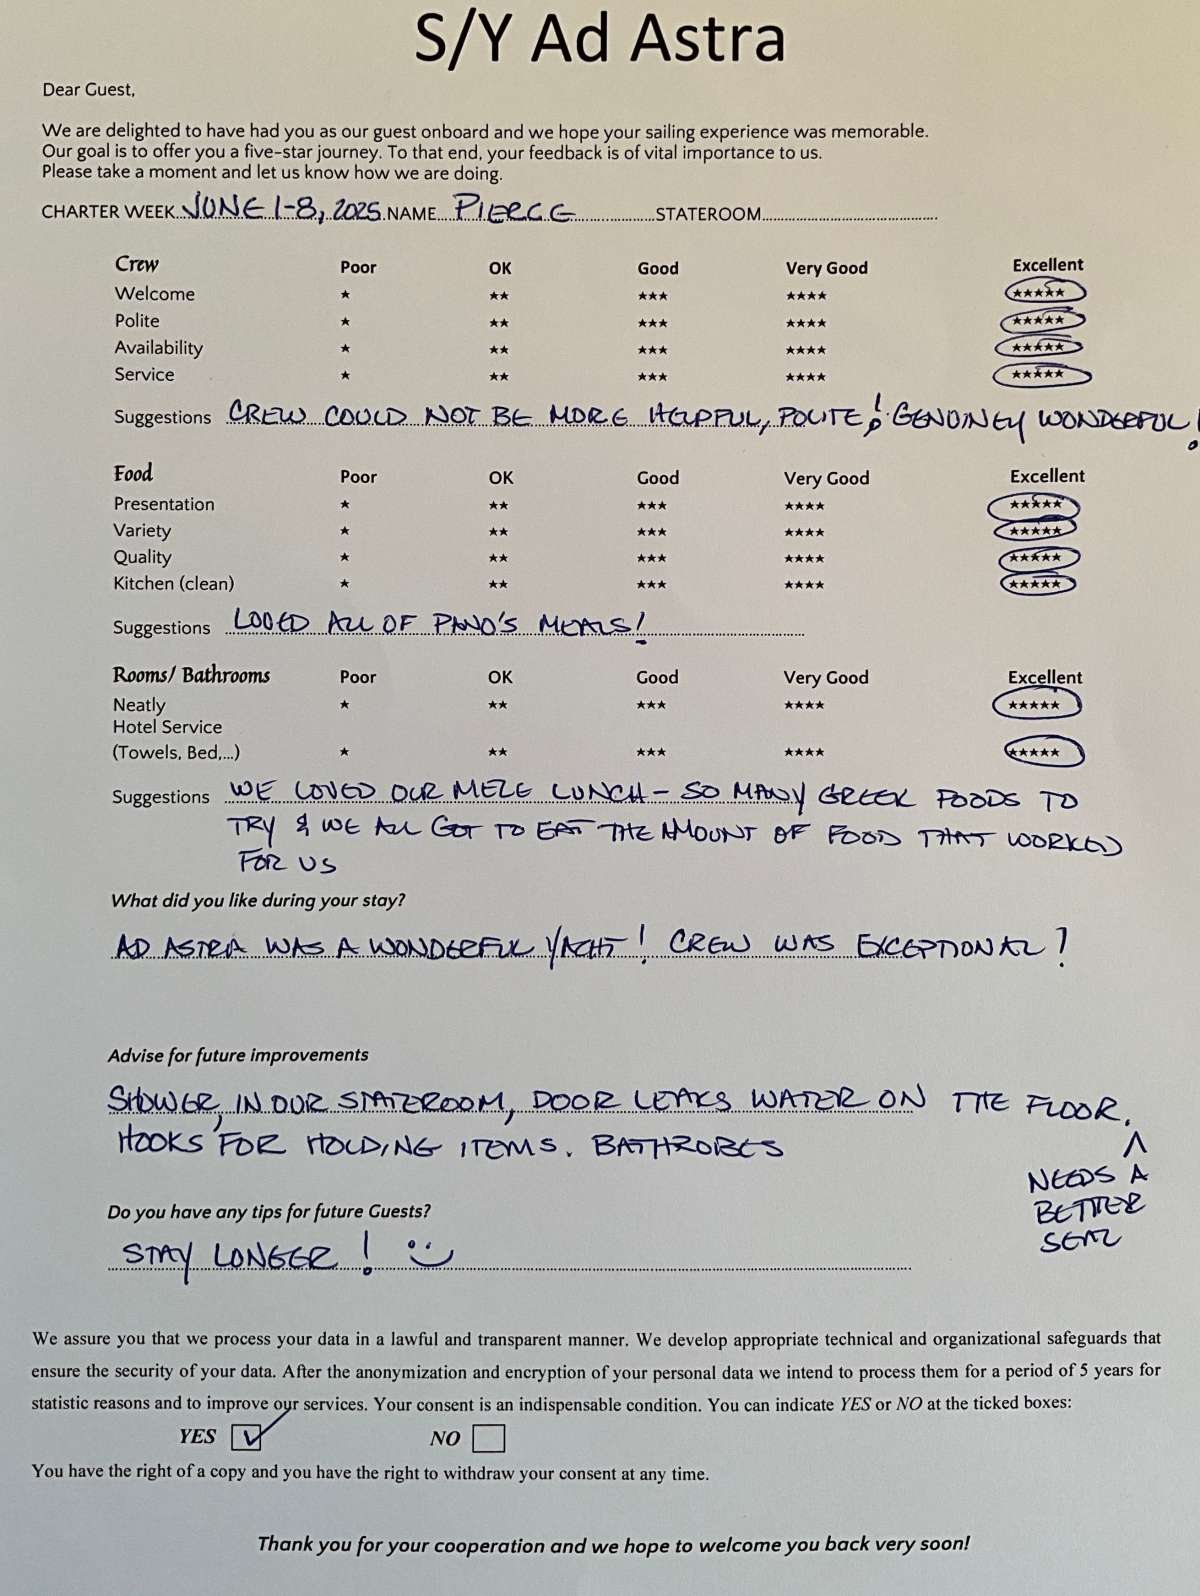 S/Y Ad Astra
Dear Guest,
We are delighted to have had you as our guest onboard and we hope your sailing experience was memorable.
Our goal is to offer you a five-star journey. To that end, your feedback is of vital importance to us.
Please take a moment and let us know how we are doing.
CHARTER WEEK JUNE 1-8, 2025 NAME PIERCE STATEROOM
Crew Poor OK Good Very Good Excellent
Welcome ★ ★★ ★★★ ★★★★ ★★★★★
Polite ★ ★★ ★★★ ★★★★ ★★★★★
Availability ★ ★★ ★★★ ★★★★ ★★★★★
Service ★ ★★ ★★★ ★★★★ ★★★★★
Suggestions CREW COULD NOT BE MORE HELPFUL, POLITE! GENUINELY WONDERFUL!
Food Poor OK Good Very Good Excellent
Presentation ★ ★★ ★★★ ★★★★ ★★★★★
Variety ★ ★★ ★★★ ★★★★ ★★★★★
Quality ★ ★★ ★★★ ★★★★ ★★★★★
Kitchen (clean) ★ ★★ ★★★ ★★★★ ★★★★★
Suggestions LOVED ALL OF PANO'S MEALS!
Rooms/ Bathrooms Poor OK Good Very Good Excellent
Neatly ★ ★★ ★★★ ★★★★ ★★★★★
Hotel Service
(Towels, Bed,...) ★ ★★ ★★★ ★★★★ ★★★★★
Suggestions WE LOVED OUR MEZE LUNCH - SO MANY GREEK FOODS TO
TRY & WE ALL GOT TO EAT THE AMOUNT OF FOOD THAT WORKED
FOR US
What did you like during your stay?
AD ASTRA WAS A WONDERFUL YACHT! CREW WAS EXCEPTIONAL!
Advise for future improvements
SHOWER, IN OUR STATEROOM, DOOR LEAKS WATER ON THE FLOOR.
HOOKS FOR HOLDING ITEMS. BATHROBES
NEEDS A
BETTER
SEAL
Do you have any tips for future Guests?
STAY LONGER!
We assure you that we process your data in a lawful and transparent manner. We develop appropriate technical and organizational safeguards that
ensure the security of your data. After the anonymization and encryption of your personal data we intend to process them for a period of 5 years for
statistic reasons and to improve our services. Your consent is an indispensable condition. You can indicate YES or NO at the ticked boxes:
YES NO
You have the right of a copy and you have the right to withdraw your consent at any time.
Thank you for your cooperation and we hope to welcome you back very soon!